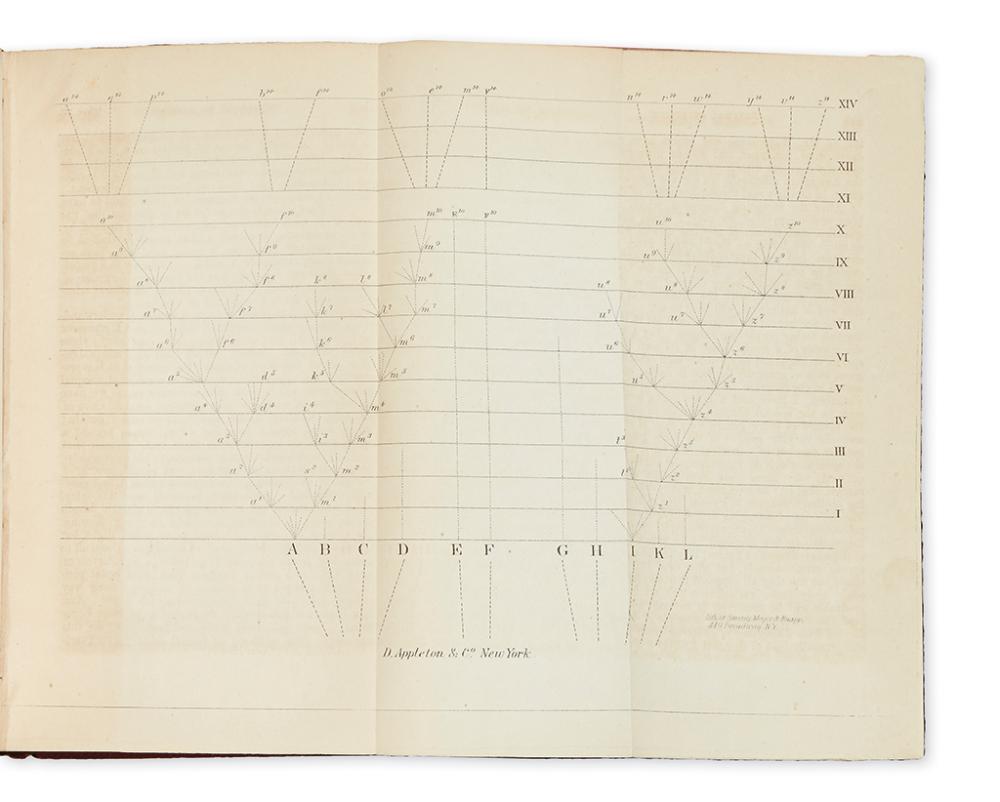 a¹⁴ q¹⁴ p¹⁴ b¹⁴ f¹⁴ o¹⁴ e¹⁴ m¹⁴ n¹⁴ r¹⁴ w¹⁴ y¹⁴ v¹⁴ z¹⁴ XIV
XIII
XII
XI
a¹⁰ f¹⁰ m¹⁰ E¹⁰ F¹⁰ w¹⁰ z¹⁰ X
a⁹ f⁹ m⁹ w⁹ z⁹ IX
a⁸ f⁸ k⁸ l⁸ m⁸ u⁸ w⁸ z⁸ VIII
a⁷ f⁷ k⁷ l⁷ m⁷ u⁷ w⁷ z⁷ VII
a⁶ f⁶ k⁶ m⁶ u⁶ z⁶ VI
a⁵ d⁵ k⁵ m⁵ u⁵ z⁵ V
a⁴ d⁴ i⁴ m⁴ z⁴ IV
a³ i³ m³ t³ z³ III
a² s² m² t² z² II
a¹ m¹ z¹ I
A B C D E F G H I K L
D. Appleton & Co. New York